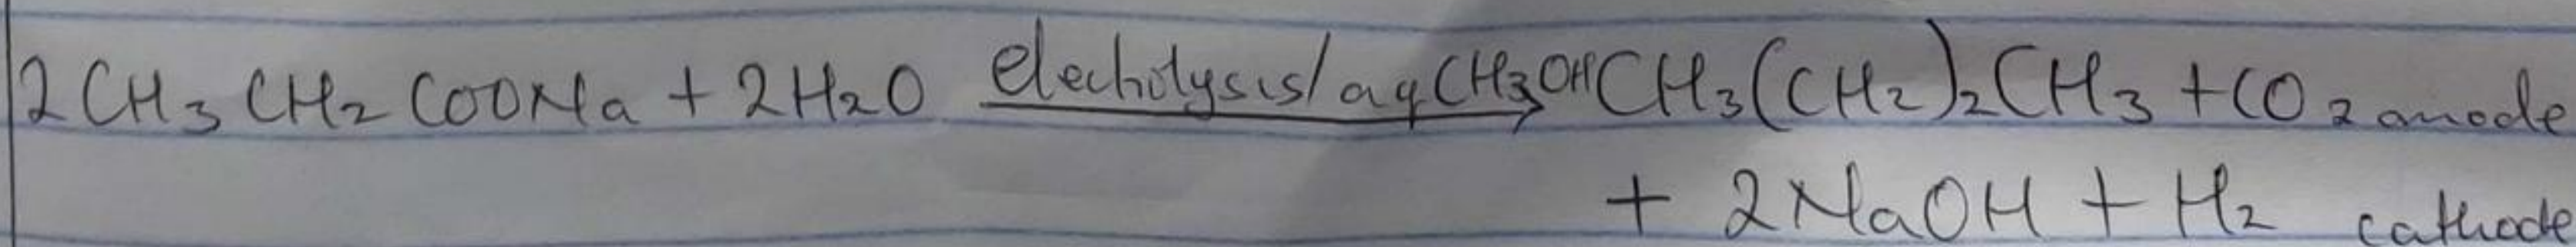 2CH₃CH₂COONa + 2H₂O electrolysis/aq CH₃OH → CH₃(CH₂)₂CH₃ + CO₂ anode
+ 2NaOH + H₂ cathode